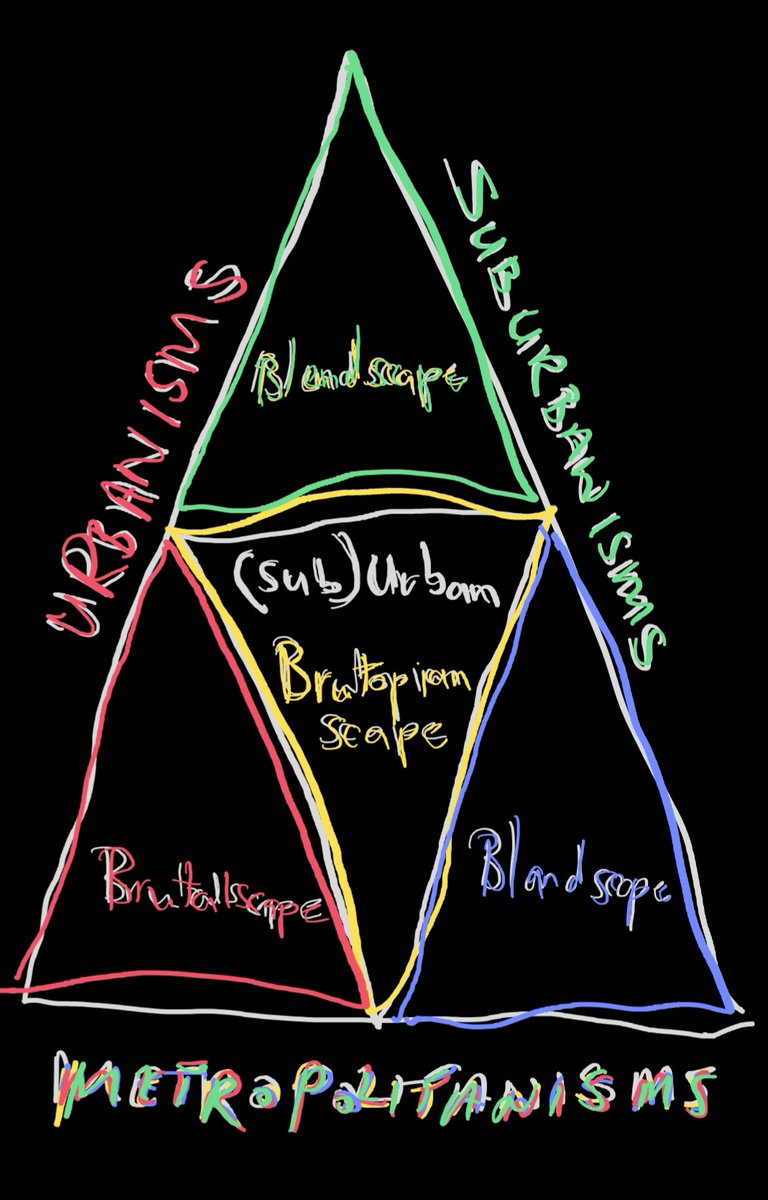 SUBURBANISMS
URBANISMS
Blandscape
(sub)Urban
Bruttopian
scape
Bruttallscape
Blandscape
METROPOLITANISMS